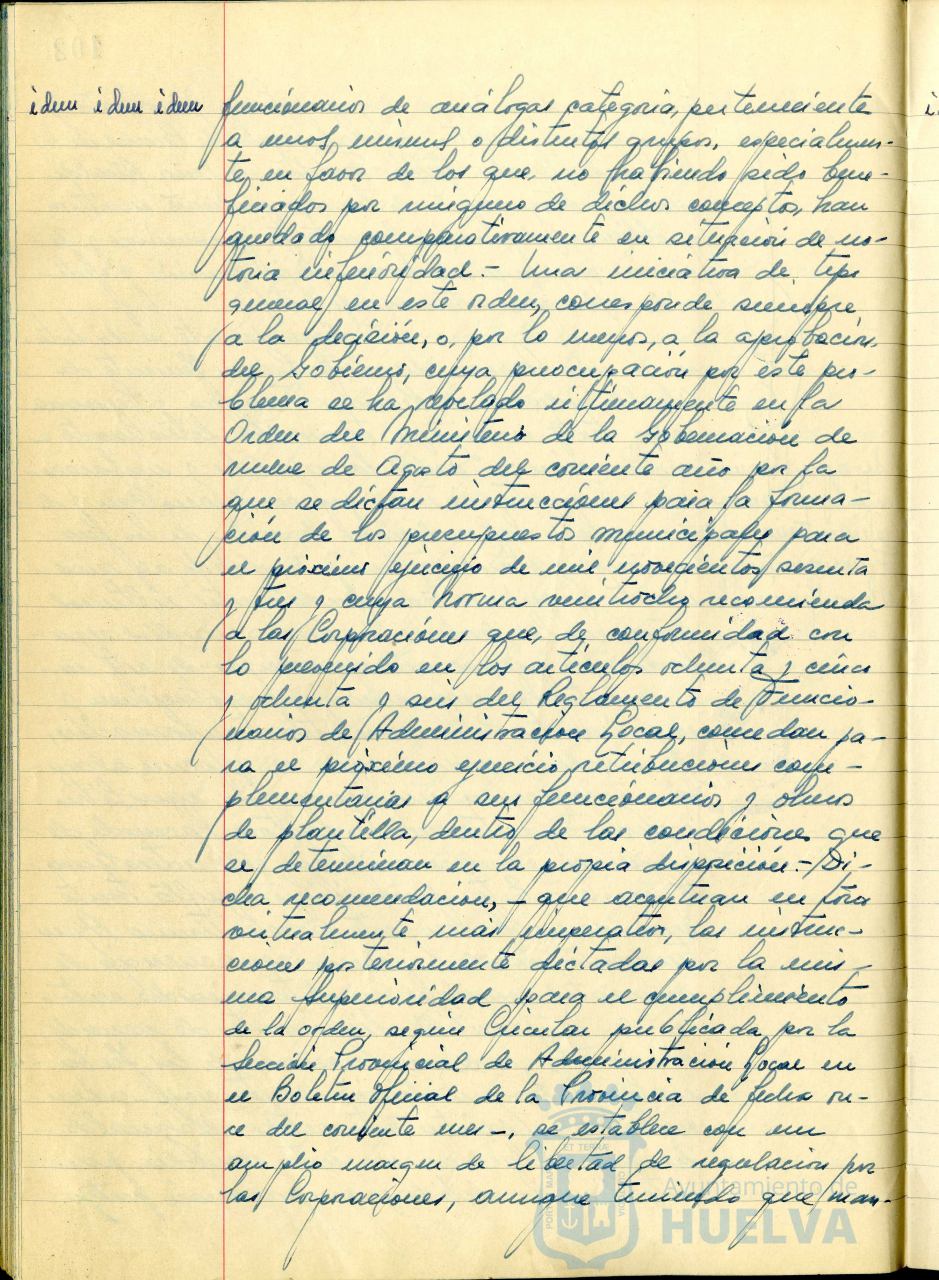 idem idem idem
funcionarios de análogas categoria, perteneciente
a unos mismos o distintos grupos, especialmen-
te, en favor de los que, no habiendo sido bene-
ficiados por ninguno de dichos conceptos, han
quedado comparativamente en situación de no-
toria inferioridad.- Una iniciativa de tipo
general en este orden, corresponde siempre
a la decisión, o, por lo menos, a la aprobación
del Gobierno, cuya preocupación por este pro-
blema se ha reflejado ultimamente en la
Orden del Ministerio de la Gobernación de
nueve de Agosto del corriente año por la
que se dictan instrucciones para la forma-
ción de los presupuestos municipales para
el próximo ejercicio de mil novecientos sesenta
y tres y cuya norma veintiocho recomienda
a las Corporaciones que, de conformidad con
lo prevenido en los artículos ochenta y cinco
y ochenta y seis del Reglamento de Funcio-
narios de Administración Local, concedan pa-
ra el próximo ejercicio retribuciones com-
plementarias a sus funcionarios y obreros
de plantilla, dentro de las condiciones que
se determinan en la propia disposición.- Di-
cha recomendación, - que acentuan en tono
virtualmente más imperativo, las instruc-
ciones posteriormente dictadas por la mis-
ma Superioridad para el cumplimiento
de la orden, según Circular publicada por la
Sección Provincial de Administración Local en
el Boletín Oficial de la Provincia de fecha on-
ce del corriente mes -, se establece con un
amplio margen de libertad de regulación por
las Corporaciones, aunque teniendo que man-
Ayuntamiento de
HUELVA